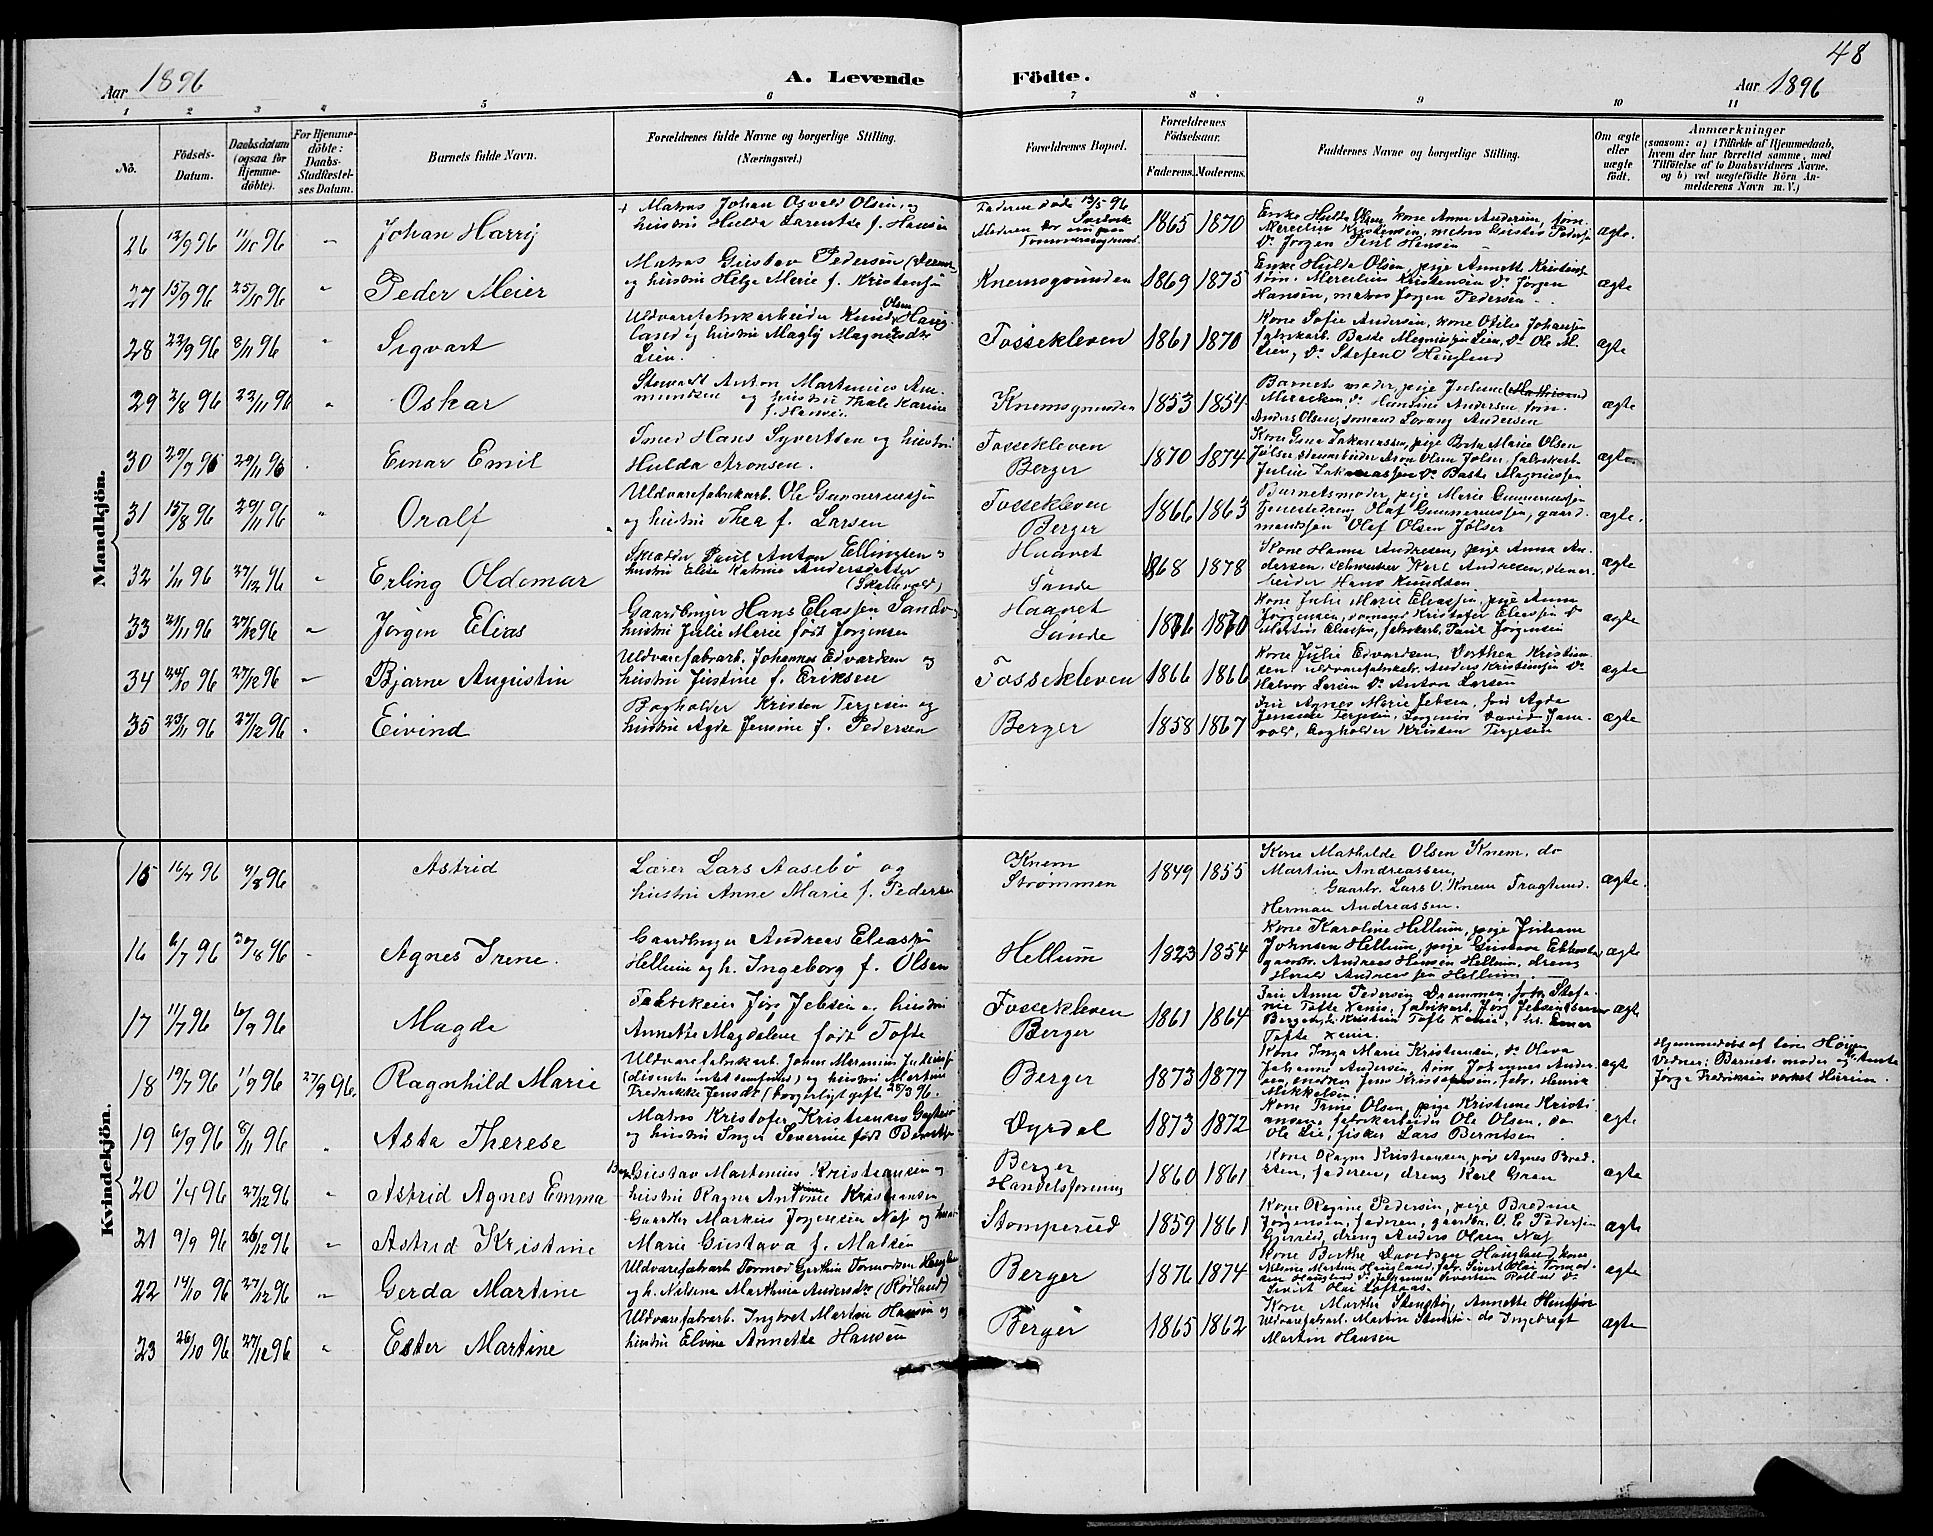 48
Aar 1896
A. Levende Födte.
Aar 1896
1 2 3 4 5 6 7 8 9 10 11
No.
Födsels-Datum.
Daabsdatum (ogsaa for Hjemme-döbte).
For Hjemme-döbte: Daabs-Stadfæstel-ses Datum.
Barnets fulde Navn.
Forældrenes fulde Navne og borgerlige Stilling. (Næringsvei.)
Forældrenes Bopæl.
Forældrenes Födselsaar.
Faderens. Moderens.
Faddernes Navne og borgerlige Stilling.
Om ægte eller uægte födt.
Anmærkninger
(saasom: a) i Tilfælde af Hjemmedaab, hvem der har forrettet samme, med Tilföielse af to Daabsvidners Navne, og b) ved uægtefödte Börn An-melderens Navn m. V.)
Mandkjön.
26 13/9 96 11/10 96 Johan Harry
+ Matros Johan Osvald Olsen, og
hustru Hulda Larentse f. Hansen
Faderen död 13/5 96
Moderen bor
1865 1870
Enke Hulda Olsen, kone Anna Andersen, töm.
Dr. Jörgen Paul Hansen
ægte.
27 15/9 96 25/10 96 Peder Meier
Matros Gustav Pedersen
og hustru Helga Marie f. Kristensen
Knemsgrunden 1869 1875
Enke Hulda Olsen, pige Annette
töm. Marcelius Kristensen Do Jörgen
Hansen, matros Jörgen Pedersen
ægte
28 22/9 96 8/11 96 Sigvart
Uldvarefabrikarbeider Knud Olsen Haug-
land og hustru Magly Magnusdtr
Lien.
Fossekleven 1861 1870
Kone Sofie Andersen, kone Otilie Johansen
fabrikarb. Baste Magnussen Lien, Do Ole M.
Lien, Do Stefen O Haugland
ægte
29 2/8 96 22/11 96 Oskar
Stuvert Anton Martinius Am-
mundsen og hustru Thale Karine
f. Hansen
Knemsgrunden 1853 1854
Barnets moder, pige Juline
Anders Olsen, Andersen
ægte
30 29/7 96 29/11 96 Einar Emil
Smed Hans Syvertsen og hustru
Hulda Aronsen.
Fossekleven
Berger
1870 1874
Kone Gina Zakariassen, pige Berta Marie Olsen
Jölsen, Aron Olsen Jölsen, fabrikarb.
Julius Zakariassen Do Baste Magnussen
ægte
31 15/8 96 29/11 96 Oralf
Uldvarefabrikarb. Ole Gunnerussen
og hustru Thea f. Larsen
Fossekleven
Berger
1866 1863
Barnets moder, pige Marie Gunnerussen
Tjenestedreng Olaf Gunnerussen, gaard-
mandssön Olaf Olsen Jölsen
ægte.
32 1/11 96 27/12 96 Erling Oldemar
Skrædder Paul Anton Ellingsen og
hustru Elise Katrine Andersdatter
(Skallevold)
Haavet
Sande
1868 1878
Kone Hanna Andresen, pige Anna An-
dersen, Karl Andresen, stenar-
beider Hans Knudsen
ægte
33 21/11 96 27/12 96 Jörgen Elias
Gaardbruger Hans Eliassen Sand og
hustru Julie Marie födt Jörgensen
Haavet
Sande
1870
Kone Julie Marie Eliassen, pige Anna
Jörgensen, Kristofer Eliassen Do
Martin Eliassen, fabrikarb. Paul Jörgensen
ægte
34 24/10 96 27/12 96 Bjarne Augustin
Uldvarefabrarb. Johannes Edvardsen og
hustru Justine f. Eriksen
Fossekleven 1866 1866
Kone Julie Edvardsen, Dorthea Kristian-
sen, uldvarefabrikarb. Anders Kristiansen Do
Halvor Larsen Do Anton Larsen
ægte
35 23/11 96 27/12 96 Eivind
Bogholder Kristen Terjesen og
hustru Agda Jensine f. Pedersen
Berger 1858 1867
Fru Agnes Marie Jebsen, fru Agda
Jensine Terjesen, David Jam-
vold, bogholder Kristen Terjesen
ægte
Kvindekjön.
15 16/7 96 9/8 96 Astrid
Lærer Lars Aasebö og
hustru Anne Marie f. Pedersen
Knem
Strømmen
1849 1855
Kone Mathilde Olsen Knem, do
Martine Andreassen,
Gaarbr. Lars O. Knem
Herman Andreassen.
ægte.
16 6/7 96 30/8 96 Agnes Irene.
Gaardbruger Andreas Eliassen
Hellum og h. Ingeborg f. Olsen
Hellum 1823 1854
Kone Karoline Hellum, pige Juliane
Johnsen Hellum, pige Gustava
gaardbr. Andreas Hansen Hellum, dreng
Harald Andreassen Hellum.
ægte
17 11/7 96 6/9 96 Magda
Fabrikeier Jörg Jebsen og hustru
Annette Magdalene födt Tofte
Fossekleven
Berger
1861 1864
Fru Anna Pedersen Drammen, frk. Stefa-
nie Tofte Xania, fabrikarb. Jörg Jebsen
Berger, Kristian Tofte Xania, hr. Einar
Tofte Xania
ægte
18 19/7 96 1/9 96 27/9 96. Ragnhild Marie
Uldvarefabrikarb. Johan Julius
(dissenter intet samfund) og hustru Martine
Fredrikke Jensdtr (borgerligt gift 25/3 96.
Berger 1873 1877
Kone Inga Marie Kristiansen, Do Oleva
Johanne Andersen, töm. Johannes Ander-
sen, snedker Jens Kristoffersen, fabr. Henrik
Mikkelsen
ægte
Hjemmedöbt af lærer Höyen
Vidner: Barnets moder og
Jörge Fredriksen verket Hurum.
19 6/9 96 8/11 96 Asta Therese
Matros Kristofer Kristiansen
og hustru Inger Severine födt Berntsen
Dyrdal 1873 1872
Kone Trine Olsen, pige Kristine Kristi-
ansen, fabrikarbeider Ole Olsen, do
Ole Lie, fisker Lars Berntsen
ægte
20 1/4 96 27/12 96 Astrid Agnes Emma
Gustav Martinius Kristiansen og
hustru Ragna Antonie Kristiansen
Berger
Handelsforening
1860 1861
Kone Ragna Kristiansen, pige Agnes Bred-
esen, faderen, dreng Karl Gran
ægte
21 9/9 96 26/12 96 Astrid Kristine
Gaardbr Markus Jörgensen Nas og hustru
Marie Gustava f. Matsen
Stomperud 1859 1861
Kone Regine Pedersen, pige Bredine
Jörgensen, faderen, gaardbr. O. E. Pedersen
Gjerrud, dreng Anders Olsen Nas
ægte
22 14/10 96 27/12 96 Gerda Martine
Uldvarefabrarb Tormod Gerthin Tormodsen Haugland
og h. Nilsina Marthinia Andersdtr (Rödland)
Berger 1876 1874
Kone Berthe Davidsen Haugland, kone
Nilsine Martine Haugland, fabr. Sivert Olai Tormod-
sen Haugland, Do Johannes Sivertsen Do
Sivert Olai Loftaas
ægte
23 26/10 96 27/12 96 Ester Martine
Uldvarefabrarb. Ingbret Martin Hansen og
hustru Elvine Annette Hansen
Berger 1865 1862
Kone Marthe Stenstö, Annette Hansen
Uldvarefabrarb. Martin Stenstö, do Ingebrigt
Martin Hansen
ægte